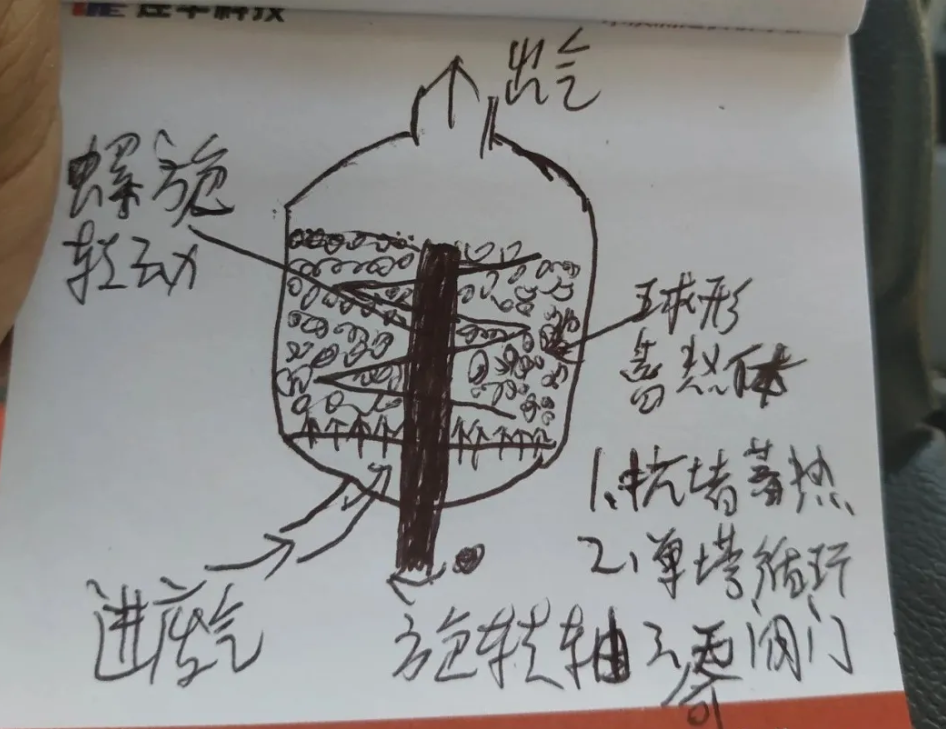 出气
螺旋
转动
球形
蓄热体
1.抗堵蓄热
2、单塔循环
进废气
旋转轴
阀门